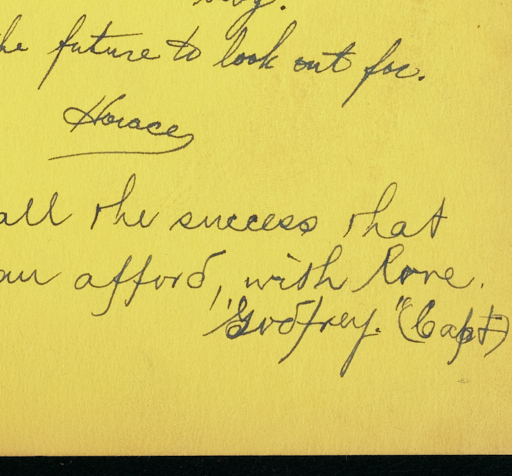 the future to look out for.
Horace
all the success that
can afford, with love.
"Godfrey." (Capt)